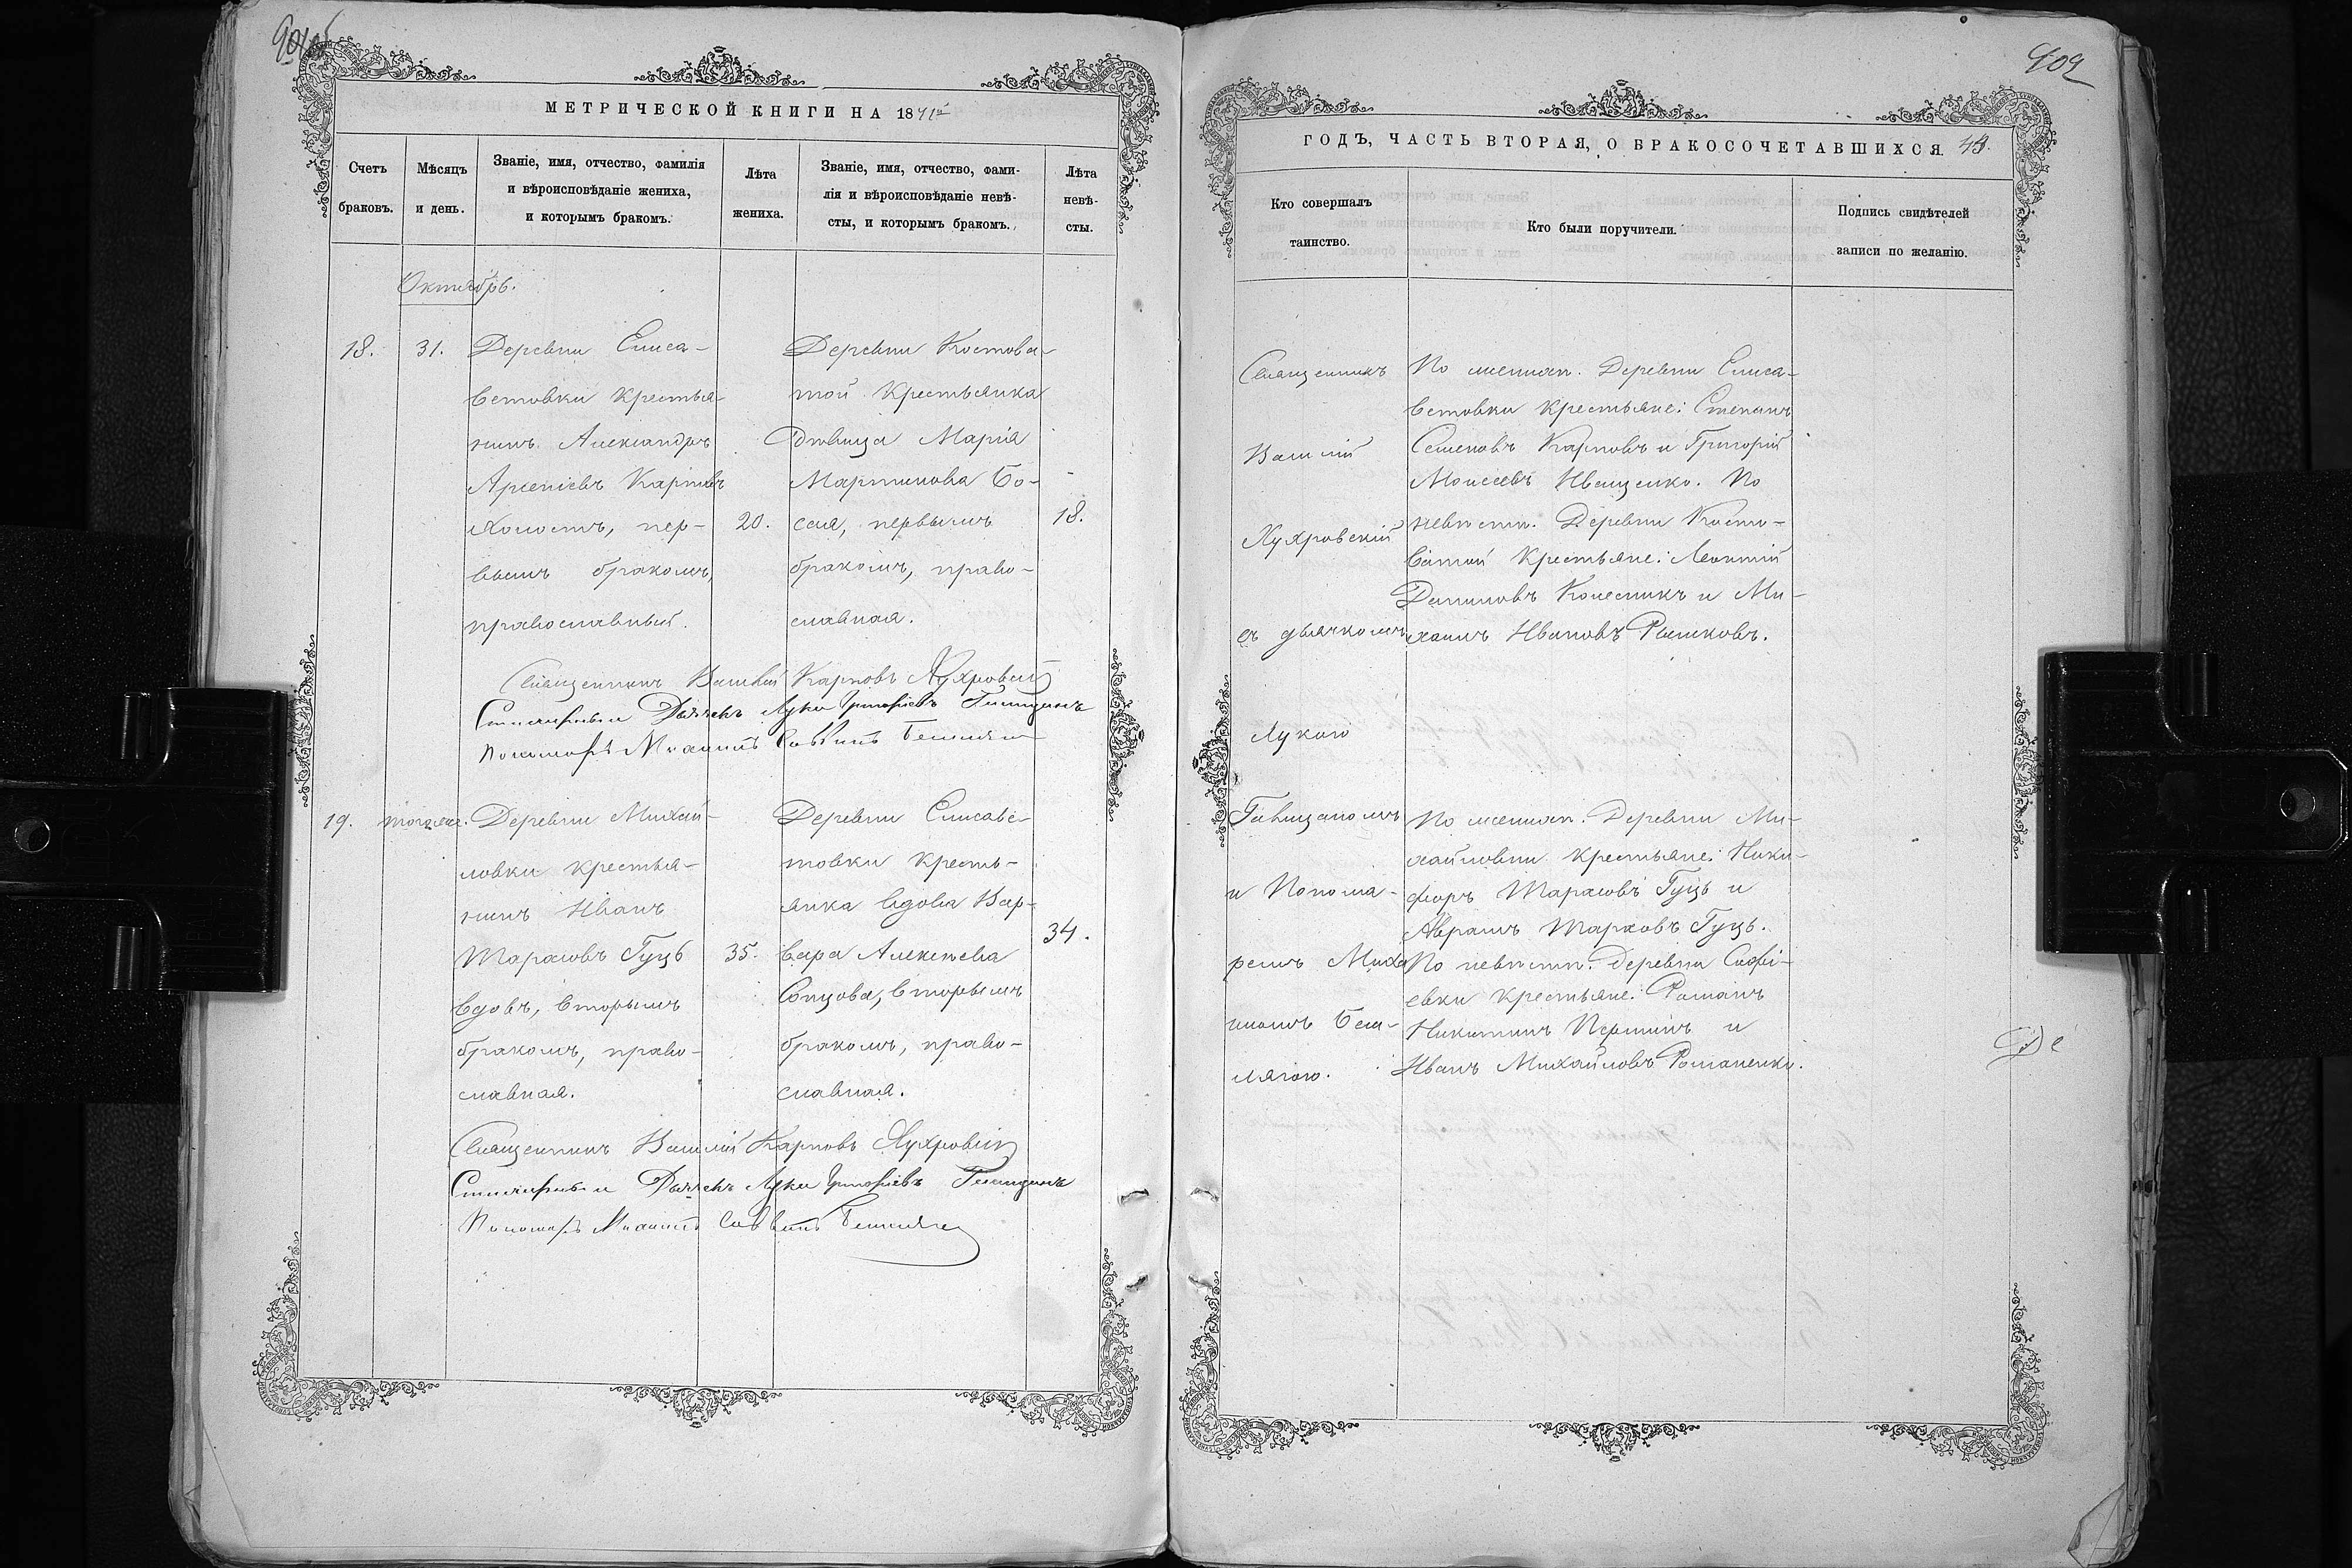 МЕТРИЧЕСКОЙ КНИГИ НА 1871й
Счетъ браковъ.
Мѣсяцъ и день.
Званіе, имя, отчество, фамилія
и вѣроисповѣданіе жениха,
и которымъ бракомъ.
Лѣта жениха.
Званіе, имя, отчество, фами-
лія и вѣроисповѣданіе невѣ-
сты, и которымъ бракомъ.
Лѣта невѣ-
сты.
Октябрь.
18.
31.
Деревни Елиса-
ветовки крестья-
нинъ Александръ
Арсеніевъ Карповъ
холостъ, пер-
вымъ бракомъ,
православный.
20.
Деревни Костова-
той крестьянка
Дѣвица Марія
Мартинова Бо-
сая, первымъ
бракомъ, право-
славная.
18.
Священникъ Василій Карповъ Лухровскій
Дьячекъ Лука Григорьевъ
Пономарь Михаилъ Саввинъ
19.
тогоже.
Деревни Михай-
ловки крестья-
нинъ Иванъ
Тарасовъ Гуць
вдовъ, вторымъ
бракомъ, право-
славная.
35.
Деревни Елисаве-
товки кресть-
янка вдова Вар-
вара Алексѣева
Сопцова, вторымъ
бракомъ, право-
славная.
34.
Священникъ Василій Карповъ Лухровскій
Дьячекъ Лука Григорьевъ
Пономарь Михаилъ Саввинъ
402
ГОДЪ, ЧАСТЬ ВТОРАЯ, О БРАКОСОЧЕТАВШИХСЯ.
Кто совершалъ
таинство.
Кто были поручители.
Подпись свидѣтелей
записи по желанію.
Священникъ
Василій
Лухровскій
съ дьячкомъ
Лукою
и Понома-
ремъ Миха
иломъ Беш-
лягою.
По женихѣ. Деревни Елиса-
ветовки крестьяне: Степанъ
Семеновъ Карповъ и Григорій
Моисеевъ Иващенко. По
невѣстѣ. Деревни Косто-
ватой крестьяне: Леонтій
Даниловъ Колесникъ и Ми-
хаилъ Ивановъ Рышковъ.
По женихѣ. Деревни Ми-
хайловки крестьяне: Ники-
форъ Тарасовъ Гуць и
Аврамъ Марковъ Гуць.
По невѣстѣ. Деревни Софі-
евки крестьяне: Романъ
Никитинъ Першинъ и
Иванъ Михайловъ Романенко.